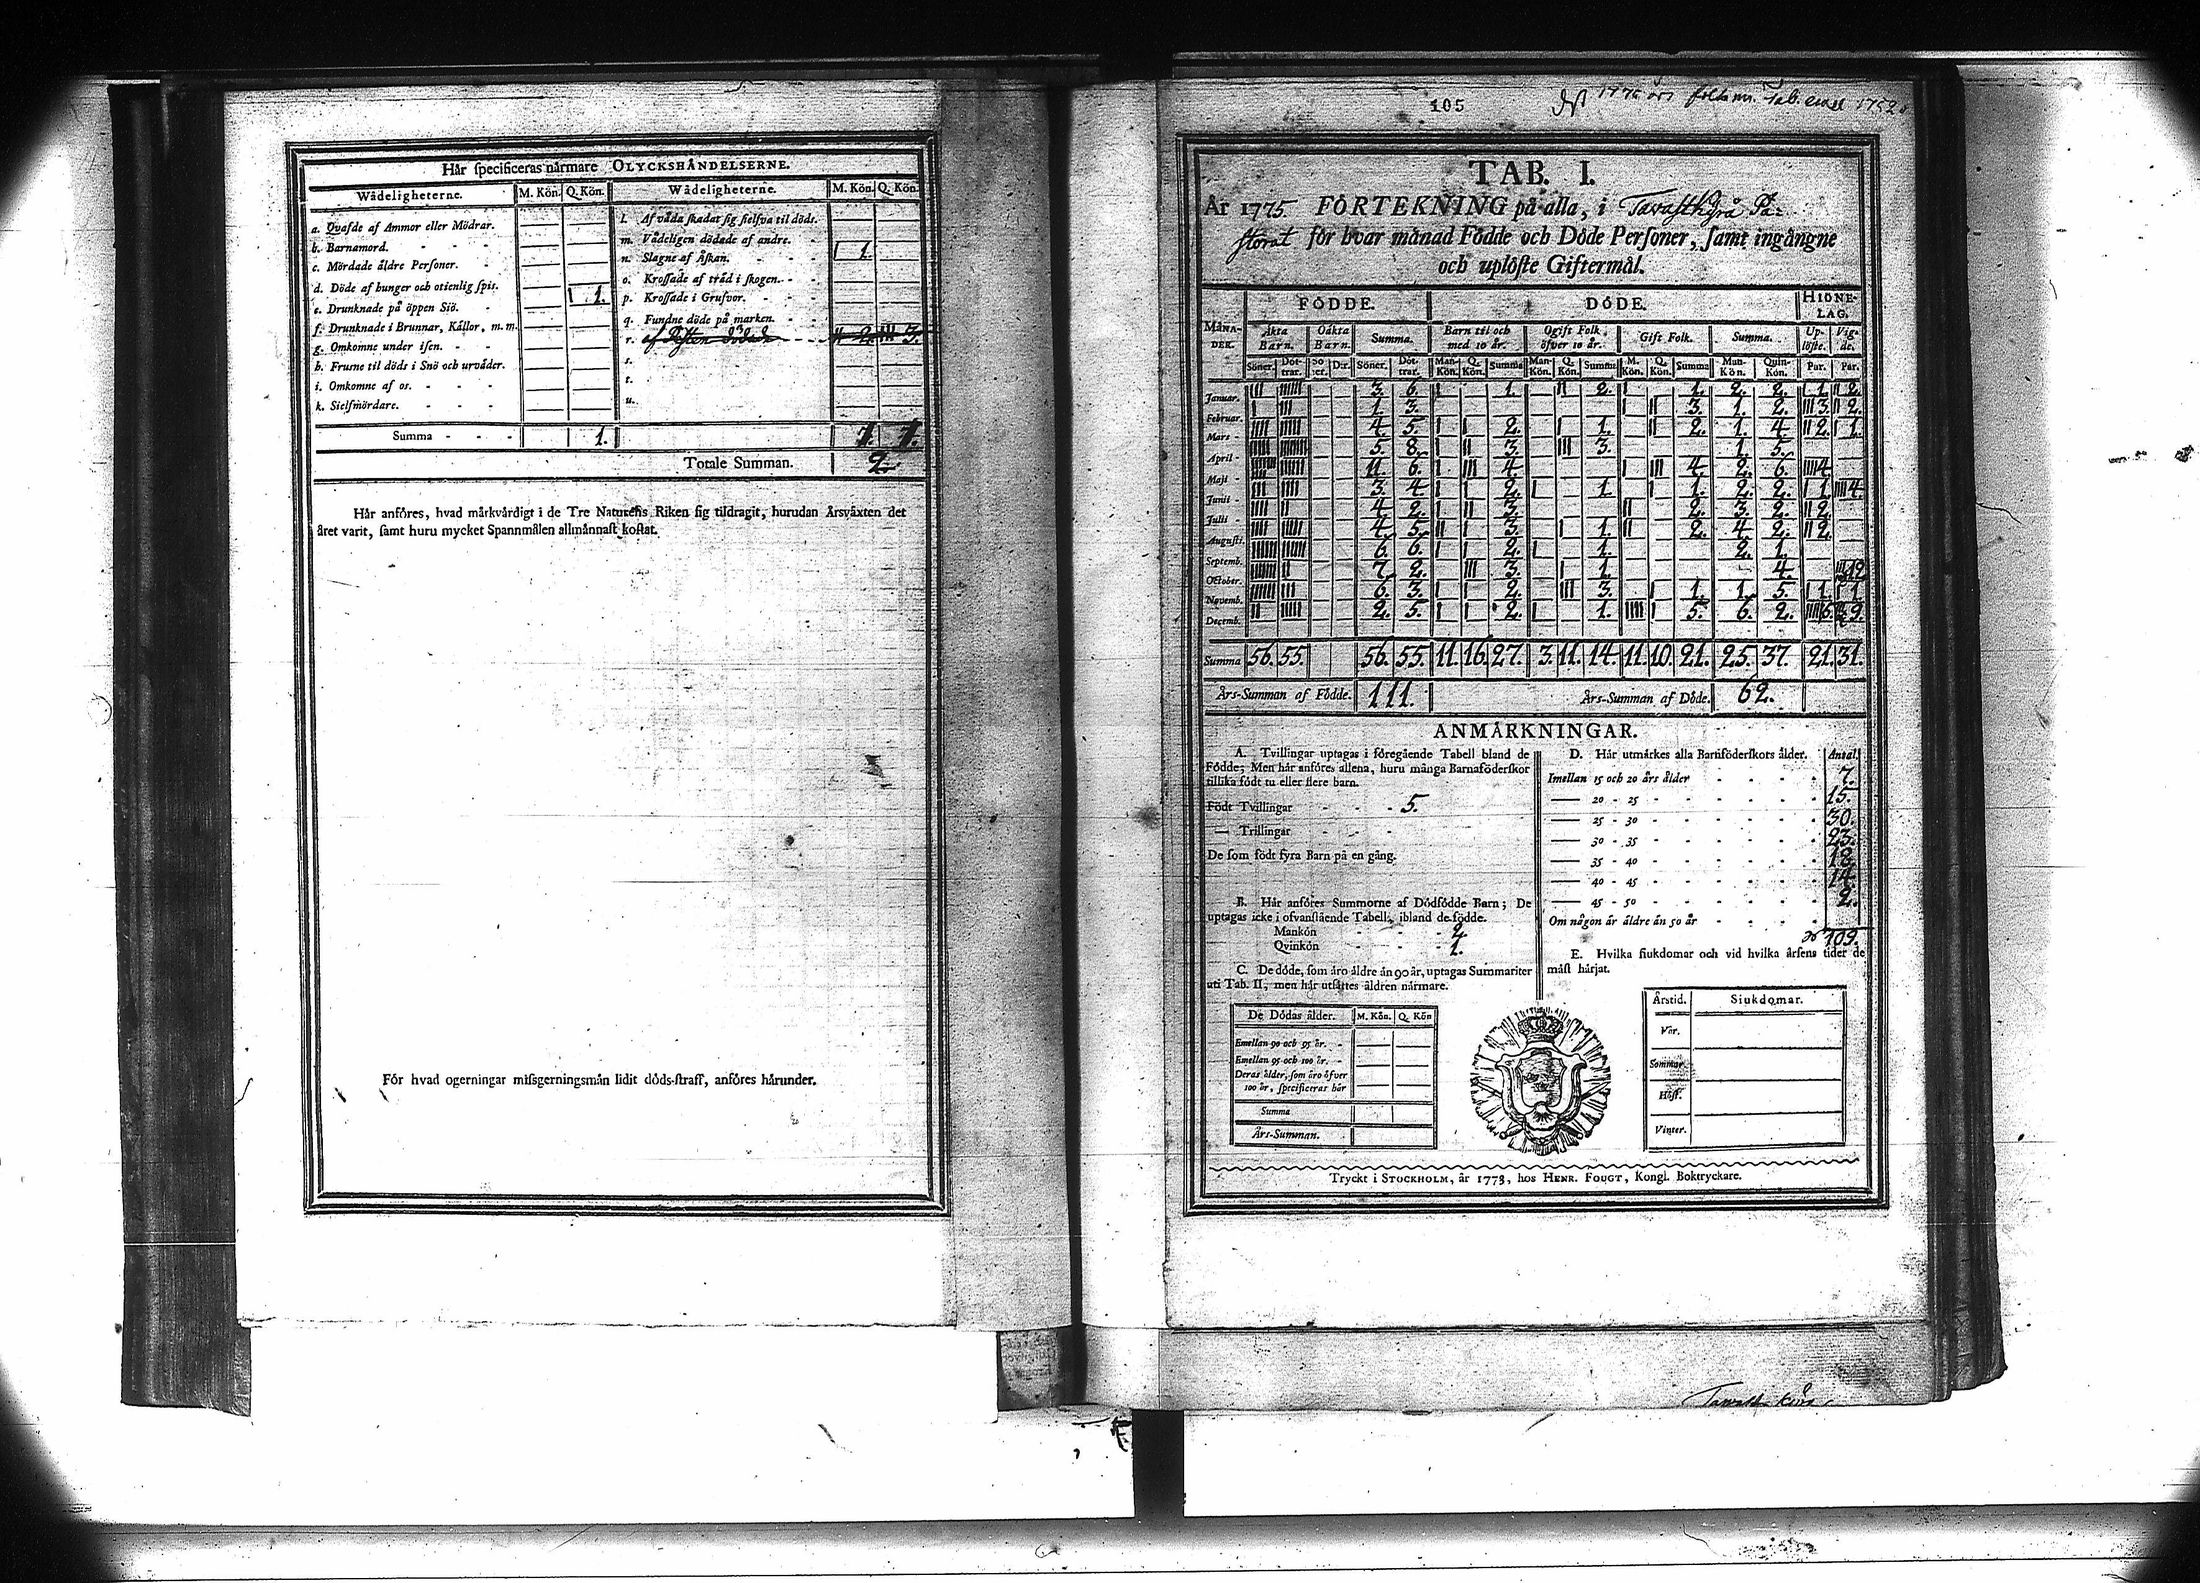 Hår specificeras nårmare OLYCKSHÅNDELSERNE.
Wådeligheterne. M. Kön. Q. Kön. Wådeligheterne. M. Kön. Q. Kön.
a. Qvafde af Ammor eller Mödrar.
b. Barnamord.
c. Mördade åldre Personer.
d. Döde af hunger och otienlig spis. 1.
e. Drunknade på öppen Siö.
f. Drunknade i Brunnar, Kållor, m. m.
g. Omkomne under isen.
h. Frusne til döds i Snö och urvåder.
i. Omkomne af os.
k. Sielfmördare.
l. Af våda skadat sig sielfva til döds.
m. Vådeligen dödade af andre.
n. Slagne af Åskan. 1.
o. Krossade af tråd i skogen.
p. Krossade i Grufvor.
q. Fundne döde på marken.
r. 2. 3.
s.
t.
u.
Summa 1. 1. 1.
Totale Summan. 2.
Hår anföres, hvad mårkvårdigt i de Tre Naturens Riken sig tildragit, hurudan Årsvåxten det
året varit, samt huru mycket Spannmålen allmånnast kostat.
För hvad ogerningar missgerningsmån lidit döds-straff, anföres hårunder.
105
folkm. Tab. 1752
TAB. I.
År 1775 FÖRTEKNING på alla, i Tavastkyrå Pa-
storat för hvar månad Födde och Döde Personer, samt ingångne
och uplöste Giftermål.
MÅNA-DER. FÖDDE. DÖDE. HIONE-LAG.
Åkta Barn. Oåkta Barn. Summa. Barn til och med 10 år. Ogift Folk öfver 10 år. Gift Folk. Summa. Up-löste. Vig-de.
Söner. Döt-trar. So ner. Dtr. Söner. Döt-trar. Man-Kön. Q. Kön. Summa Man-Kön. Q. Kön. Summa M. Kön. Q. Kön. Summa Man-Kön. Quin-Kön. Par. Par.
Januar. 3. 6. 1. 2. 1. 2. 2. 1. 2.
Februar. 1. 3. 3. 1. 2. 3. 2.
Mars 4. 5. 2. 1. 2. 1. 4. 2. 1.
April 5. 8. 3. 3. 1. 5.
Maji 11. 6. 4. 4. 2. 6. 4.
Junii 3. 4. 2. 1. 1. 2. 2. 1. 4.
Julii 4. 2. 3. 2. 3. 2. 2.
Augusti. 4. 5. 3. 1. 2. 4. 2. 2.
Septemb. 6. 6. 2. 1. 2. 1.
Oktober. 7. 2. 3. 1. 4. 12
Novemb. 6. 3. 2. 3. 1. 1. 5. 1. 1
Decemb. 2. 5. 2. 1. 5. 6. 2. 6. 9.
Summa 56. 55. 56. 55. 11. 16. 27. 3. 11. 14. 11. 10. 21. 25. 37. 21. 31.
Års-Summan af Födde. 111. Års-Summan af Döde. 62.
ANMÅRKNINGAR.
A. Tvillingar uptagas i föregående Tabell bland de
Födde; Men hår anföres allena, huru många Barnaföderskor
tillika födt tu eller flere barn.
Födt Tvillingar 5.
— Trillingar
De som födt fyra Barn på en gång.
B. Hår anföres Summorne af Dödfödde Barn; De
uptagas icke i ofvanstående Tabell, ibland de födde.
Mankön 2.
Qvinkön 1.
C. De döde, som åro åldre ån 90 år, uptagas Summariter
uti Tab. II, men hår utsåttes åldren nårmare.
De Dödas ålder. M. Kön. Q. Kön
Emellan 90 och 95 år.
Emellan 95 och 100 år.
Deras ålder, som åro öfver
100 år, specificeras hår
Summa
Års-Summan.
D. Hår utmårkes alla Barnföderskors ålder. Antal.
Imellan 15 och 20 års ålder 7.
— 20 - 25 15.
— 25 - 30 30.
— 30 - 35 23.
— 35 - 40 18.
— 40 - 45 14.
— 45 - 50 2.
Om någon år åldre ån 50 år
109.
E. Hvilka siukdomar och vid hvilka årsens tider de
måst hårjat.
Årstid. Siukdomar.
Vår.
Sommar.
Höst.
Vinter.
Tryckt i STOCKHOLM, år 1773, hos HENR. FOUGT, Kongl. Boktryckare.